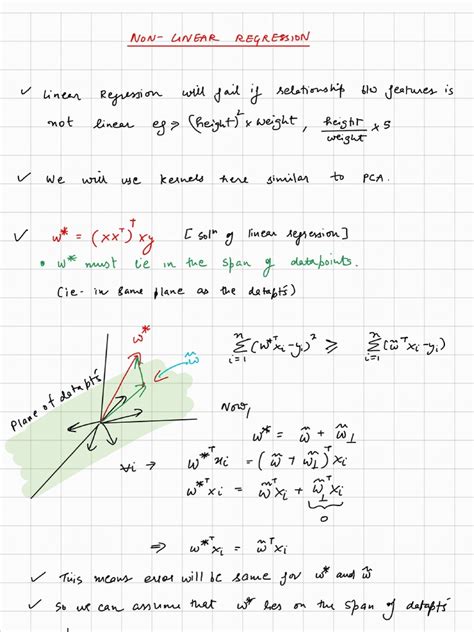 NON-LINEAR REGRESSION
✓ Linear Regression will fail if relationship b/w features is
not linear eg → (height)² × weight, height/weight × 5
✓ We will use kernels here similar to PCA.
✓ w* = (XXᵀ)† Xy [solⁿ of linear regression]
• w* must lie in the span of datapoints.
(ie- in same plane as the datapts)
w*
w̃
Plane of datapts
ⁿΣᵢ₌₁ (w*ᵀxᵢ-yᵢ)² ≥ ⁿΣᵢ₌₁ (w̃ᵀxᵢ-yᵢ)
Now,
w* = w̃ + w̃⊥
∀i → w*ᵀxi = (w̃ + w̃⊥)ᵀxi
w*ᵀxi = w̃ᵀxi + w̃⊥ᵀxi
0
⇒ w*ᵀxi = w̃ᵀxi
✓ This means error will be same for w* and w̃
✓ So we can assume that w* lies on the span of datapts